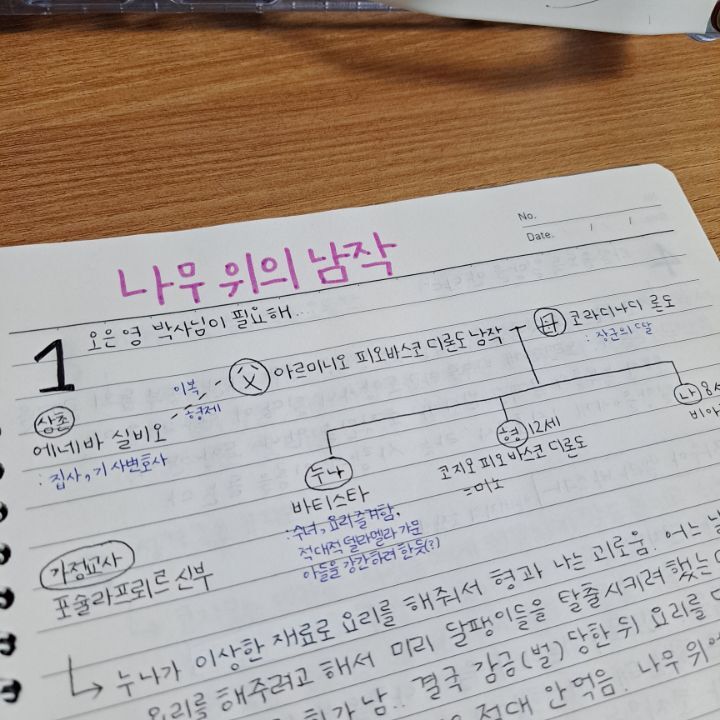 No.
Date. / /
나무 위의 남작
1
오은영 박사님이 필요해...
父 아르미니오 피오바스코 디론도 남작
母 코라디나디 론도
: 장군의 딸
이복
형제
삼촌
에네바 실비오
: 집사, 기사변호사
누나
바티스타
: 수녀, 요리 즐겨함.
적대적 델라멜라 가문
아들을 강간하려 한 듯(?)
형 12세
코지오 피오바스코 디론도
=미노
나 8세
비아
가정교사
포슐라프뢰르 신부
↳ 누나가 이상한 재료로 요리를 해줘서 형과 나는 괴로움. 어느 날
요리를 해주려고 해서 미리 달팽이들을 탈출시키려 했는데
화가 남.. 결국 감금(벌) 당한 뒤 요리를
절대 안 먹음. 나무 위에